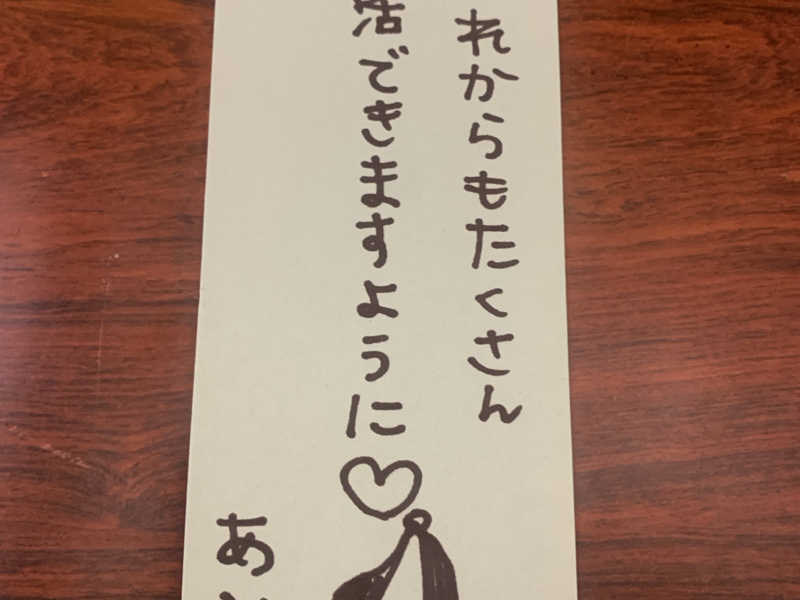 れからもたくさん
活できますように♡
あ